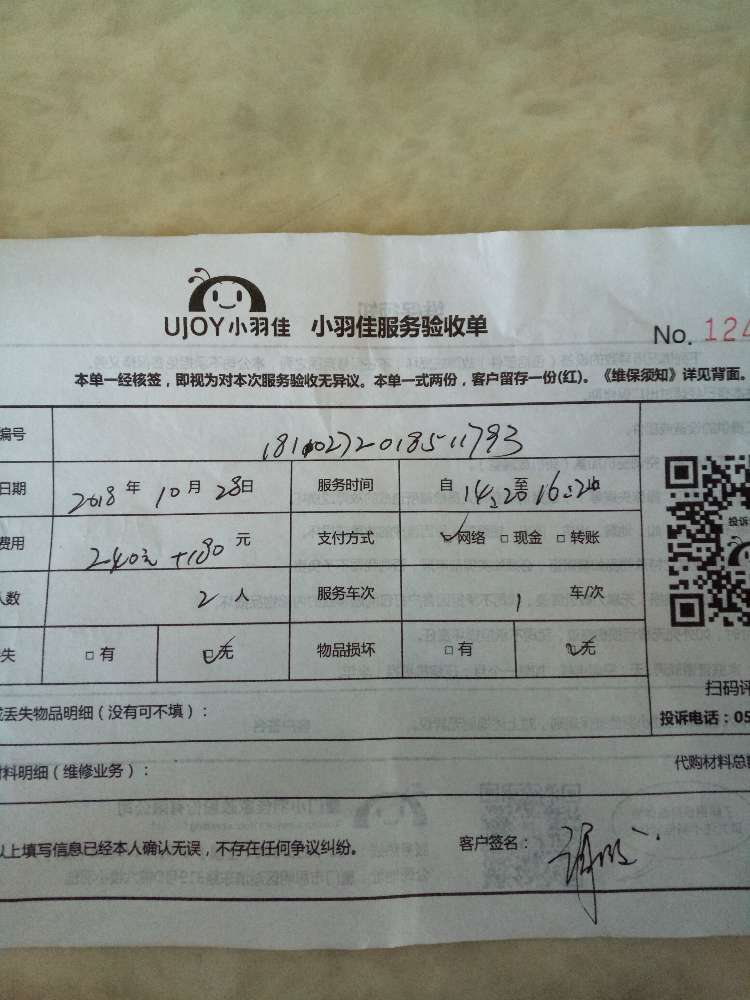 UJOY小羽佳 小羽佳服务验收单
No. 124
本单一经核签，即视为对本次服务验收无异议。本单一式两份，客户留存一份(红)。《维保须知》详见背面。
编号 1810272018511793
日期 2018 年 10 月 28 日 服务时间 自 14:20 至 16:20
费用 240元+180 元 支付方式 ☑网络 □现金 □转账
人数 2 人 服务车次 1 车/次
失 □有 ☑无 物品损坏 □有 ☑无
投诉
扫码评
丢失物品明细（没有可不填）：
投诉电话：05
材料明细（维修业务）：
代购材料总
以上填写信息已经本人确认无误，不存在任何争议纠纷。 客户签名：